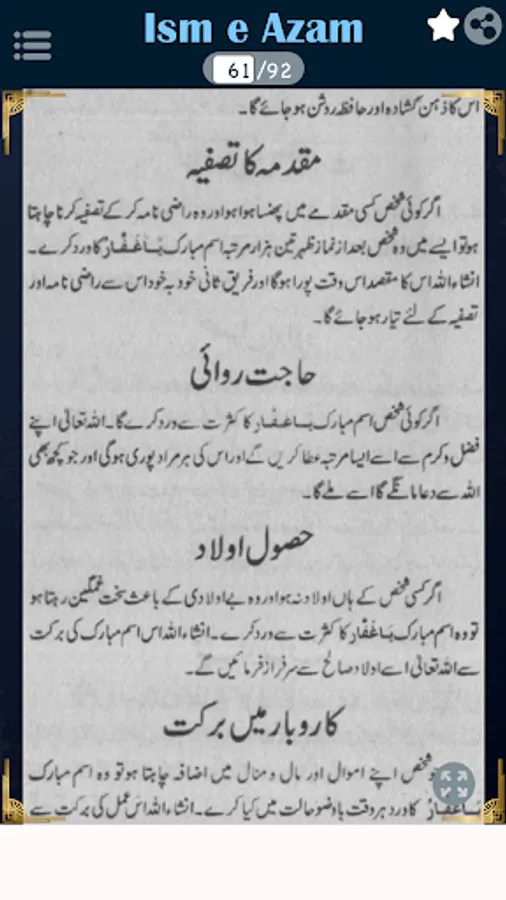 Ism e Azam
61/92
اس کا ذہن کشادہ اور حافظہ روشن ہو جائے گا۔
مقدمہ کا تصفیہ
اگر کوئی شخص کسی مقدمے میں پھنسا ہوا ہو اور وہ راضی نامہ کر کے تصفیہ کرنا چاہتا
ہو تو ایسے میں وہ شخص بعد از نماز ظہر تین ہزار مرتبہ اسم مبارک یَاغَفَّارُ کا ورد کرے۔
انشاء اللہ اس کا مقصد اس وقت پورا ہوگا اور فریق ثانی خود بہ خود اس سے راضی نامہ اور
تصفیہ کے لئے تیار ہو جائے گا۔
حاجت روائی
اگر کوئی شخص اسم مبارک یَاغَفَّارُ کا کثرت سے ورد کرے گا۔ اللہ تعالیٰ اپنے
فضل و کرم سے اسے ایسا مرتبہ عطا کریں گے اور اس کی ہر مراد پوری ہوگی اور جو کچھ بھی
اللہ سے دعا مانگے گا اسے ملے گا۔
حصول اولاد
اگر کسی شخص کے ہاں اولاد نہ ہو اور وہ بے اولادی کے باعث سخت غمگین رہتا ہو
تو وہ اسم مبارک یَاغَفَّارُ کا کثرت سے ورد کرے۔ انشاء اللہ اس اسم مبارک کی برکت
سے اللہ تعالیٰ اسے اولاد صالح سے سرفراز فرمائیں گے۔
کاروبار میں برکت
جو شخص اپنے اموال اور مال و منال میں اضافہ چاہتا ہو تو وہ اسم مبارک
یَاغَفَّارُ کا ورد ہر وقت باوضو حالت میں کیا کرے۔ انشاء اللہ اس عمل کی برکت سے